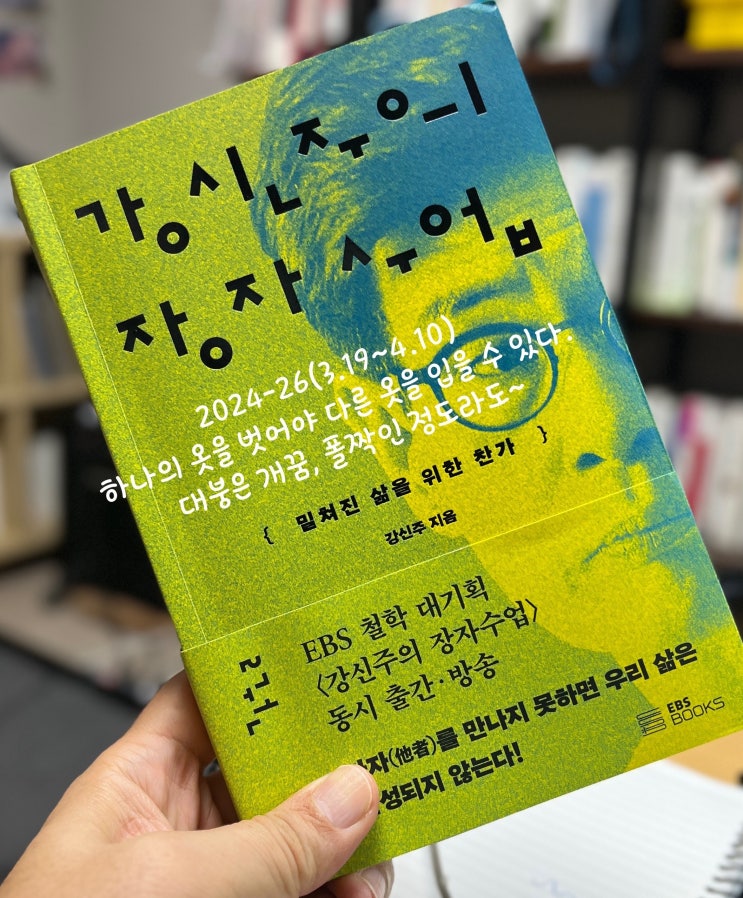 강신주의
장자수업
2024-26(3.19~4.10)
하나의 옷을 벗어야 다른 옷을 입을 수 있다.
대붕은 개꿈, 폴짝인 정도라도~
{ 밀쳐진 삶을 위한 찬가 }
강신주 지음
EBS 철학 대기획
〈강신주의 장자수업〉
동시 출간·방송
(他者)를 만나지 못하면 우리 삶은
되지 않는다!
EBS
BOOKS